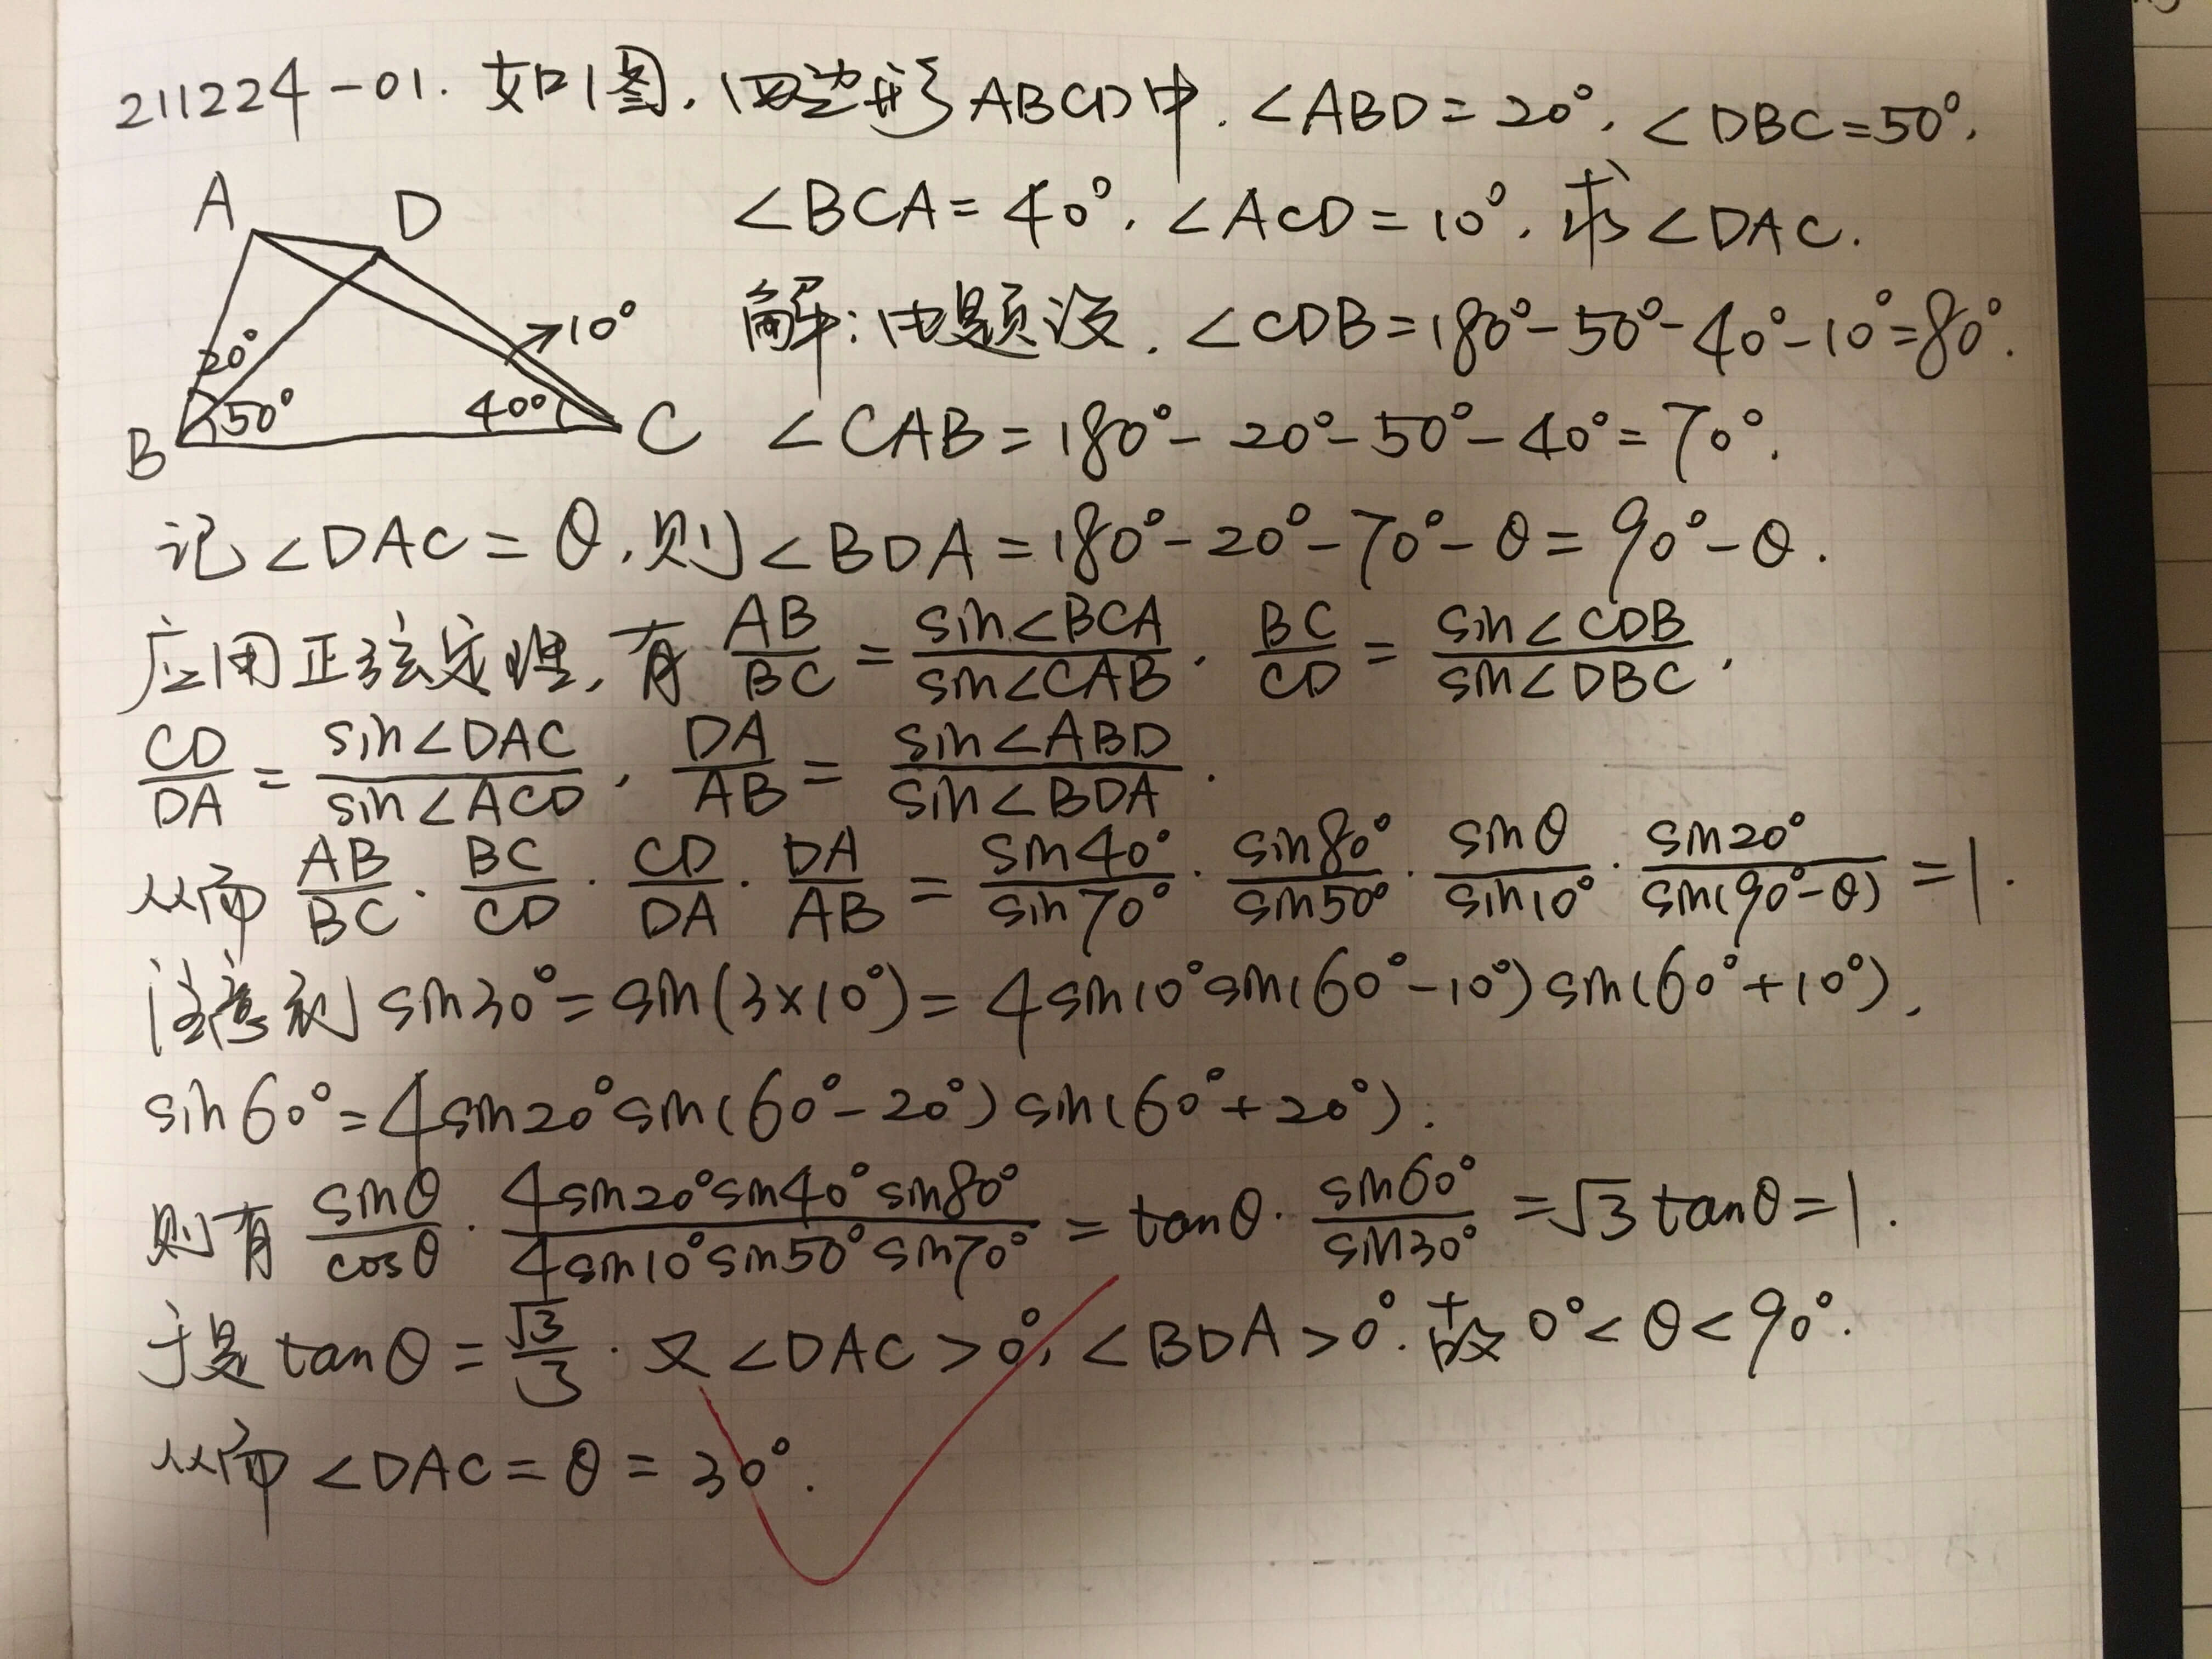 211224-01. 如图, 四边形ABCD中. ∠ABD=20°, ∠DBC=50°,
∠BCA=40°, ∠ACD=10°, 求∠DAC.
A D
20° 50° 40° 10°
B C
解:由题设, ∠CDB=180°-50°-40°-10°=80°.
∠CAB=180°-20°-50°-40°=70°.
记∠DAC=θ,则∠BDA=180°-20°-70°-θ=90°-θ.
应用正弦定理,有 AB/BC = sin∠BCA/sin∠CAB, BC/CD = sin∠CDB/sin∠DBC,
CD/DA = sin∠DAC/sin∠ACD, DA/AB = sin∠ABD/sin∠BDA.
从而 AB/BC · BC/CD · CD/DA · DA/AB = sin40°/sin70° · sin80°/sin50° · sinθ/sin10° · sin20°/sin(90°-θ) = 1.
注意到 sin30°=sin(3×10°)=4sin10°sin(60°-10°)sin(60°+10°),
sin60°=4sin20°sin(60°-20°)sin(60°+20°).
则有 sinθ/cosθ · 4sin20°sin40°sin80°/4sin10°sin50°sin70° = tanθ · sin60°/sin30° = √3tanθ=1.
于是tanθ=√3/3. 又∠DAC>0°, ∠BDA>0°. 故0°<θ<90°.
从而∠DAC=θ=30°.